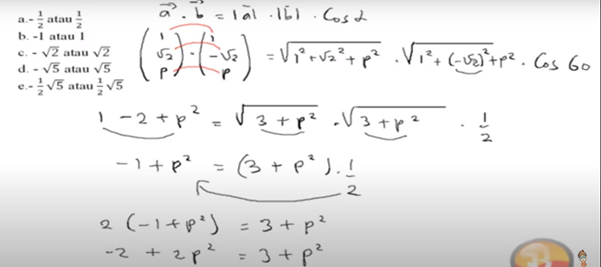 a.- 1/2 atau 1/2
b. -1 atau 1
c. - √2 atau √2
d. - √5 atau √5
e.- 1/2 √5 atau 1/2 √5
a⃗ . b⃗ = |a⃗| . |b⃗| . Cos α
(1 √2 p) . (1 -√2 p) = √(1² + √2² + p²) . √(1² + (-√2)² + p²) . Cos 60
1 - 2 + p² = √(3 + p²) . √(3 + p²) . 1/2
-1 + p² = (3 + p²) . 1/2
2 (-1 + p²) = 3 + p²
-2 + 2p² = 3 + p²